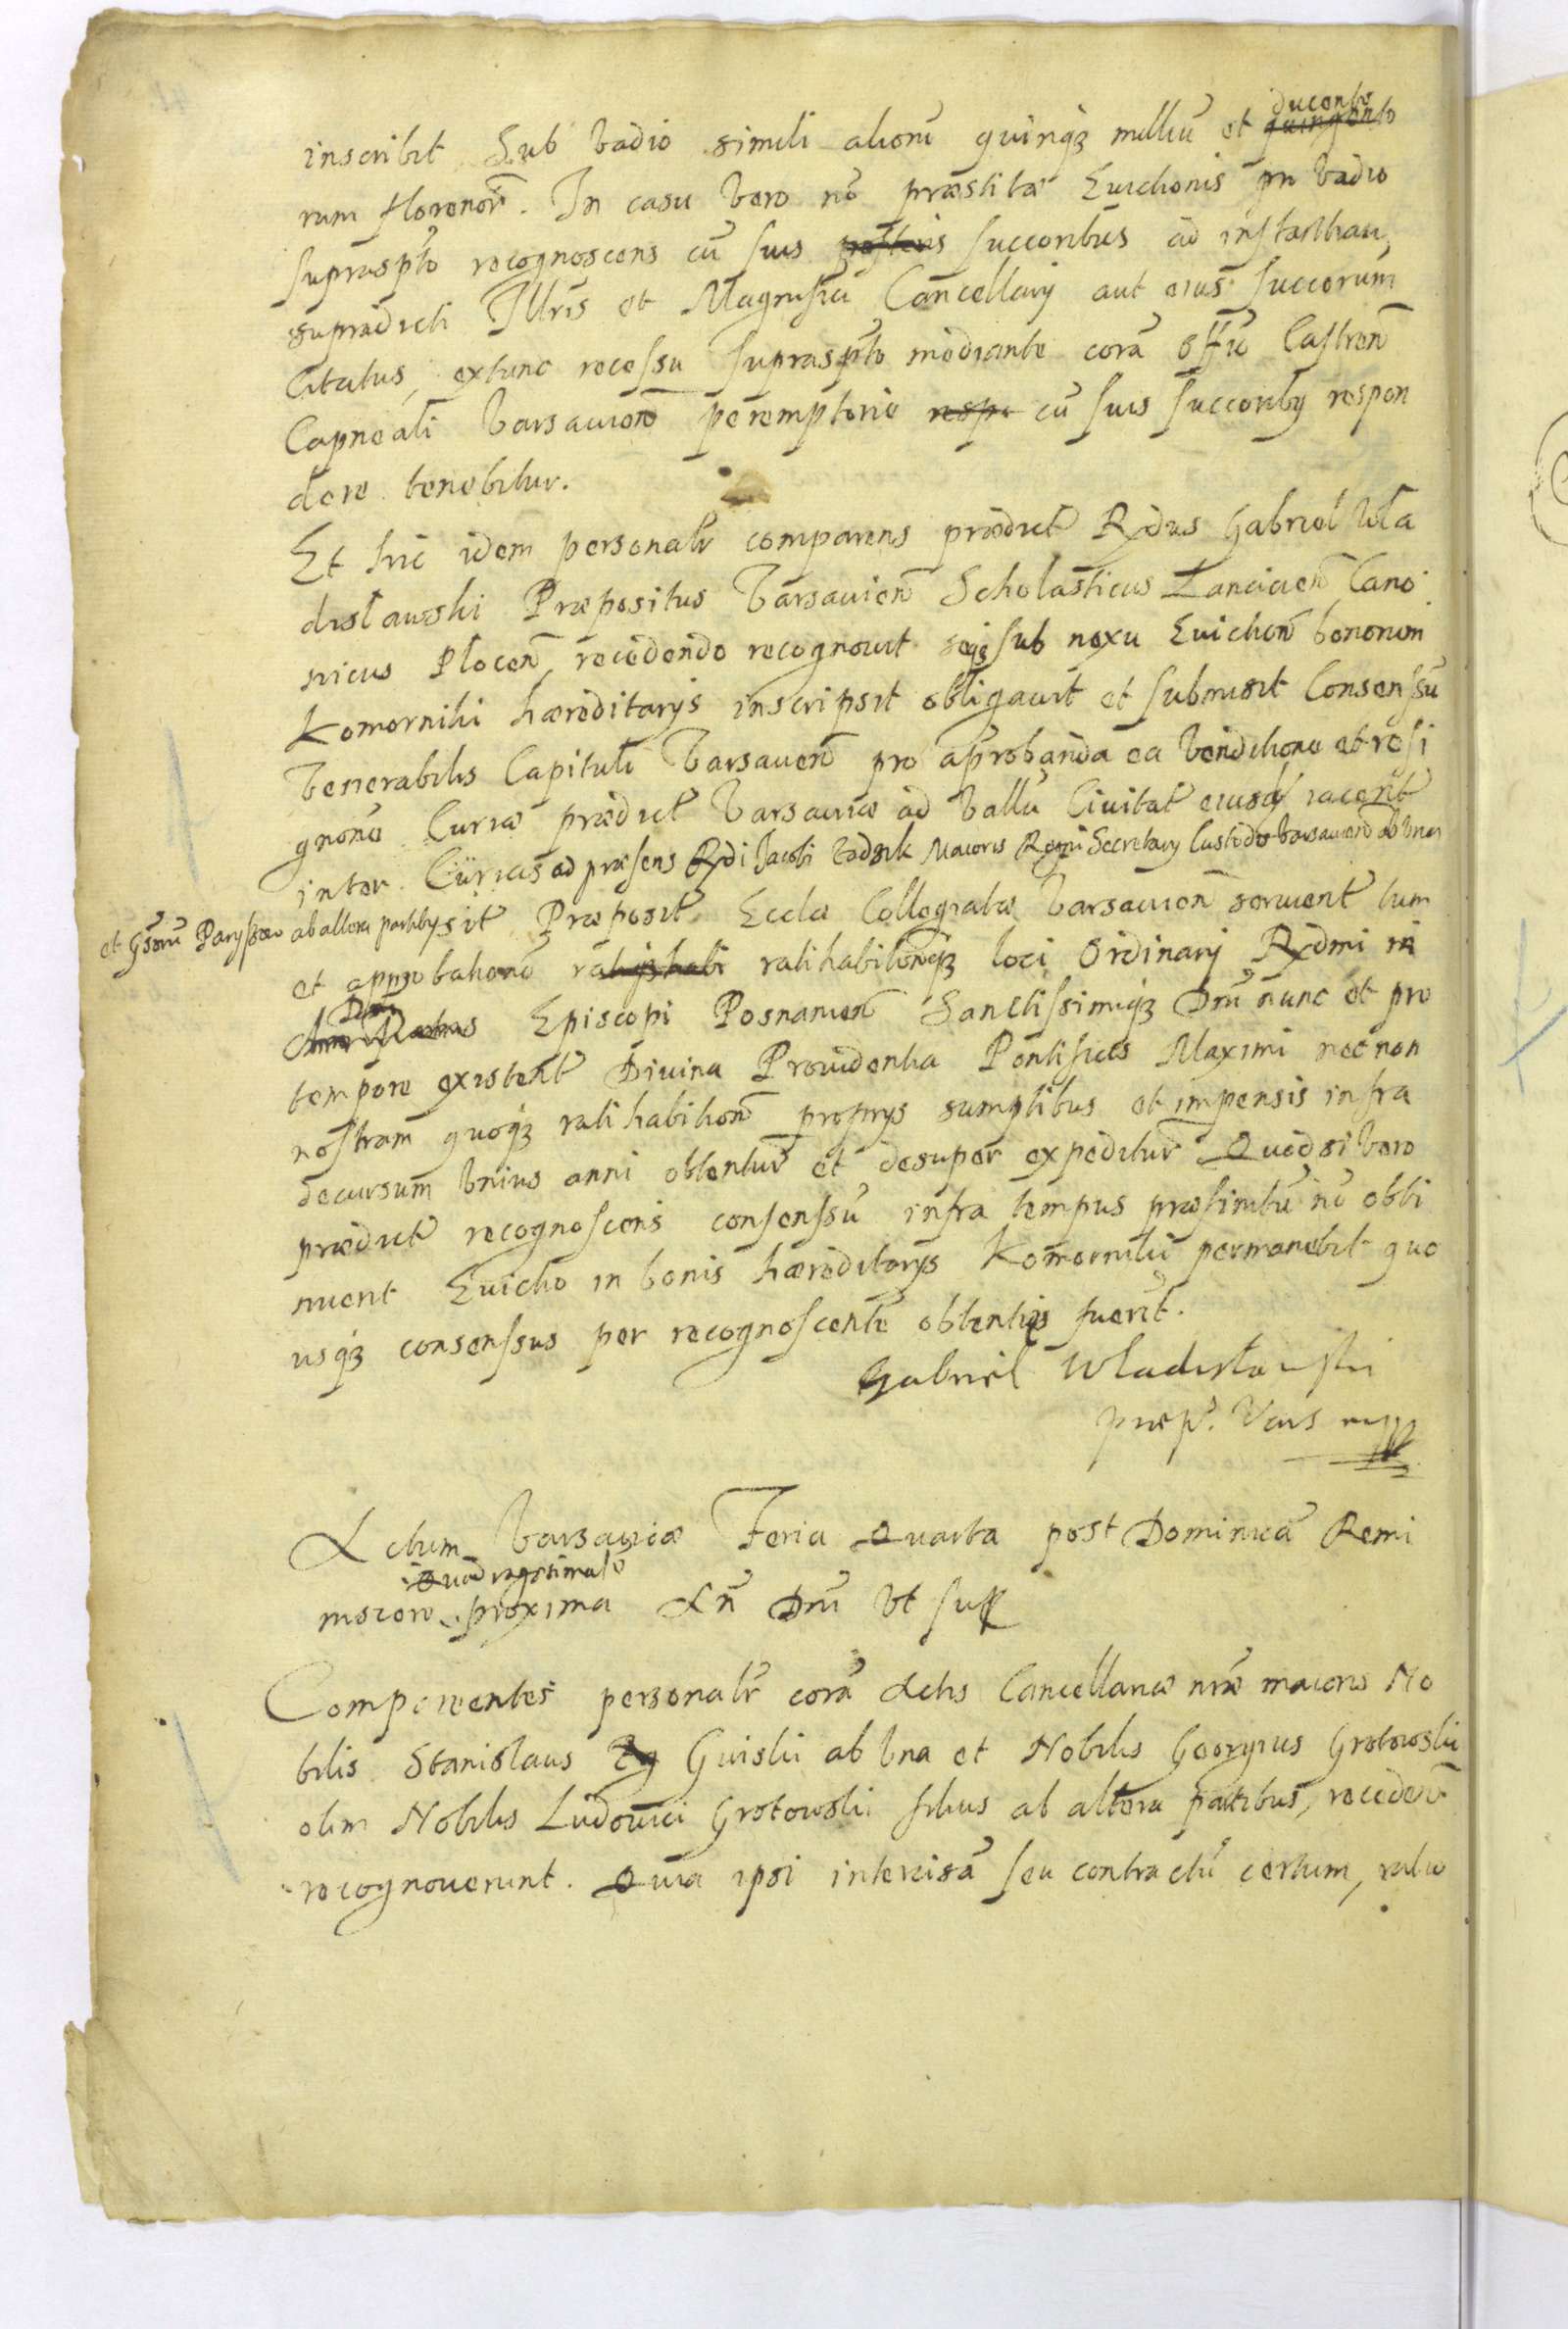 inscribit Sub vadio simili aliorū quinqꝫ milliū et ducento
quingento
rum florenor̄. In casu vero nō præstitæ Evictionis pn vadio
supraspto recognoscens cū suis posteris succoribus ad instantiam
supradicti Illris et Magnifici Cancellarij aut eius succorum
Citatus, extunc recessu suprasp̄to mediante corā offō Castren̄
Capneali Varsavien̄ peremptorie respo cū suis succoriby respon
dere tenebitur.
Et hic idem personalr̄ comparens prædict̄ Rdus Gabriel Wla
dislawski Præpositus Varsavien̄ Scholasticus Lancicien̄ Cano
nicus Plocen̄, recedendo recognovit seqꝫ sub nexu Eviction̄ bonorum
Komorniki hæreditarys inscripsit obligavit et submisit Consensū
Venerabilis Capituli Varsavien̄ pro aprobanda ea venditione et resi
gnone Curiæ prædict̄ Varsaviæ ad vallū Civitat̄ eiusd iacent̄
inter Curias ad præsens Rdi Jacobi Zadzik Maioris Regni Secretary Custodis Varsavien̄ ab una
et Gsorū Paryssow ab altera partiby sit̄ Præposit̄ Ecclæ Collegiatæ Varsavien̄ servient̄ tum
et approbationē ratijshabi ratihabitionēqꝫ loci Ordinarij Rdmi in
Dm̄
Episcopi Posnanien̄ Sanctissimiqꝫ Dn̄i nunc et pro
tempore existent̄ Divina Providentia Pontificis Maximi nec non
nostram quoqꝫ ratihabition̄ proprys sumptibus et impensis infra
decursum unius anni obtentur̄ et desuper expeditur̄ Quod si vero
prædict̄ recognoscens consensū infra tempus præfinitū nō obti
nuerit Evictio in bonis hæreditarys Komorniki permanebit quo
usqꝫ consensus per recognoscente obtentus fuerit.
Gabriel Wladislawski
præp. Vars mpp
Actum Varsaviæ Feria Quarta post Dominicā Remi
Quadragesimale
niscere proxima An̄ Dn̄i Vt supr
Comparentes personalr̄ corā Actis Cancellariæ nr̄æ maioris No
bilis Stanislaus Zg Guiski ab una et Nobilis Georgius Grotowski
olim Nobilis Ludovici Grotowski filius ab altera partibus, recedend
recognoverunt. Quia ipsi intercisā seu contractū certum, ratio